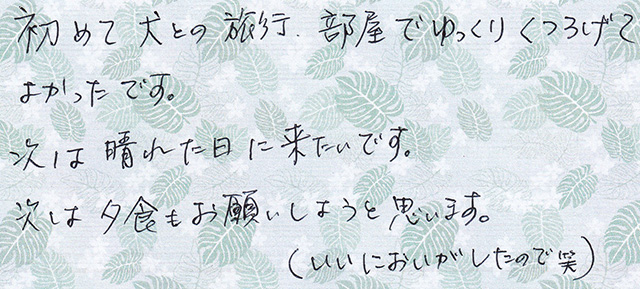 初めて犬との旅行．部屋でゆっくりくつろげて
よかったです。
次は晴れた日に来たいです。
次は夕食もお願いしようと思います。
（いいにおいがしたので笑）